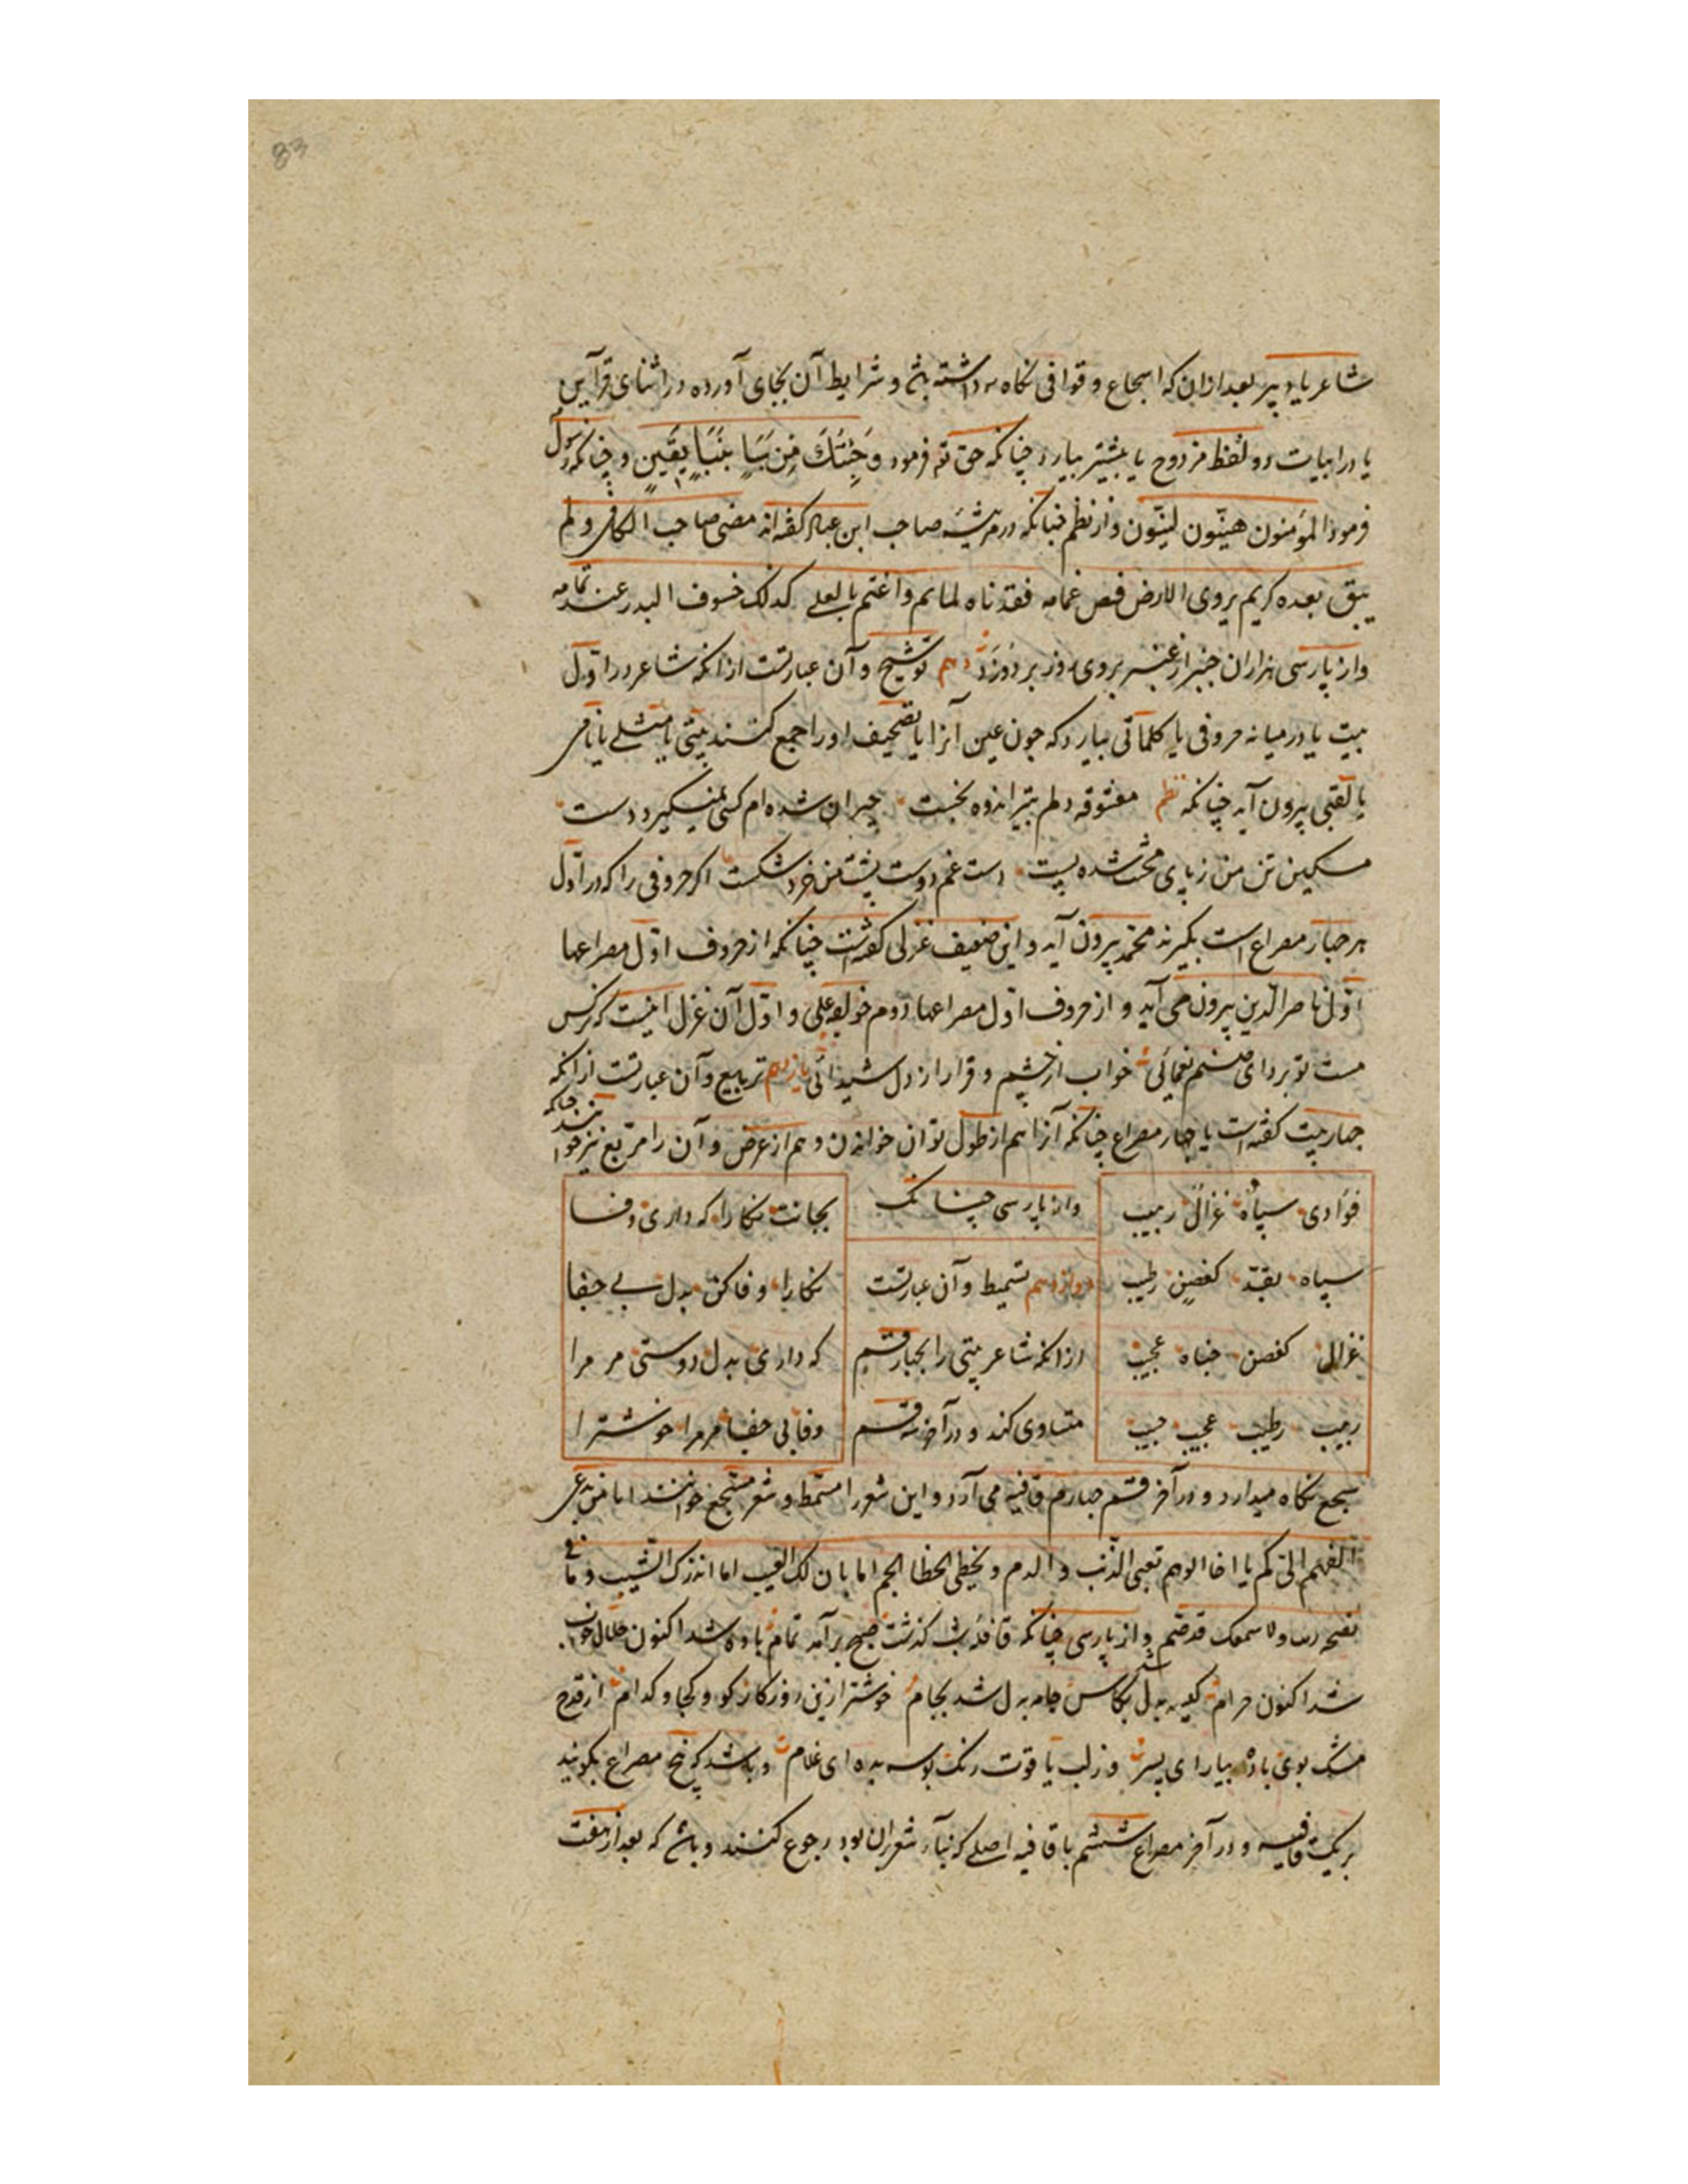 83
شاعر یا دبیر بعد از ان که اسجاع و قوافی نکاه داشته باشد و شرایط آن بجای آورده در اثنای قرآین
یا در ابیات دو لفظ مزدوج یا بیشتر بیارد چنانکه حق تع فرمود وَجِئْتُكَ مِن سَبَإٍ بِنَبَإٍ يَقِينٍ و چنانکه رسول
فرمود المؤمنون هینّون لینّون و از نظم چنانکه در مرثیه صاحب ابن عباد کفته اند مضی صاحب الکافی و لم
یبق بعده کریم یروی الارض فیض غمامه فقدناه لما تم و اغتم بالعلی کذلک خسوف البدر عند تمامه
و از پارسی هزاران خنبر از عنبر بروی روز بر دوزد دهم توشیح و آن عبارتست از انکه شاعر در اول
بیت یا در میانه حروفی یا کلماتی بیارد که چون عین آنرا یا تصحیف او را جمع کنند بیتی یا مثلی یا نامی
یا لقبی بیرون آید چنانکه نظم معشوقه دلم بتیر اندوه بخست حیران شده ام کسی نمیکیرد دست
مسکین تن من ز پای محنت شده پست دست غم دوست پشت من خرد شکست اکر حروفی را که در اول
هر چهار مصراع است بکیرند محمد بیرون آید و این ضعیف غزلی کفته است چنانکه از حروف اول مصراعها
اول ناصر الدین بیرون می آید و از حروف اول مصراعها دوم خولعه علی و اول آن غزل اینست که نرکس
مست تو بردای صنم نعمائی خواب از چشم و قرار از دل شیدائی یازدهم تربیع و آن عبارتست از انکه
چهار بیت کفته است یا چهار مصراع چنانکه آنرا هم از طول توان خواندن و هم از عرض و آن را مربع نیز خوانند چنانکه
فؤادی سباه غزال ربیب
سباه بقدّ کغصن رطیب
غزالی کغصن جناه عجیب
ربیب رطیب عجیب حبیب
و از پارسی چنانک
دوازدهم تسمیط و آن عبارتست
از انکه شاعر بیتی را بچهار قسم
متساوی کند و در آخر سه قسم
بجانت نکارا که داری وفا
نکارا وفا کن بدل بی جفا
که داری بدل دوستی مر مرا
وفا بی جفا مر مرا خوشترا
سجع نکاه میدارد و در آخر قسم چهارم قافیه می آرد و این شعر را مسمط و شعر مسجع خوانند ایا من یدعی
الفهم الی کم یا اخا الوهم تعبی الذنب و الذم و تخطی الخطا الجم اما بان لک العیب اما انذرک الشیب و ما فی
نصحه ریب و لا سمعک قد صم و از پارسی چنانکه قافله شب کذشت صبح برآمد تمام باده شد اکنون حلال خواب
شد اکنون حرام کعبه بدل شد بکاس جامه بدل شد بجام خوشتر ازین روزکار کو و کجا و کدام از قدح
مشک بوی باده بیار ای پسر و ز لب یاقوت رنک بوسه بده ای غلام و باشد که پنج مصراع بکویند
بر یک قافیه و در آخر مصراع ششم با قافیه اصلی که بناء شعر بر ان بود رجوع کنند و باشد که بعد از هفت